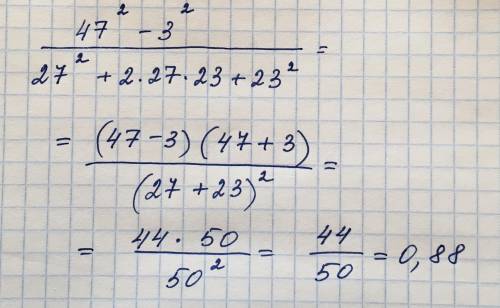 (47² - 3²) / (27² + 2·27·23 + 23²) =
= ((47 - 3) (47 + 3)) / (27 + 23)² =
= (44 · 50) / 50² = 44 / 50 = 0,88